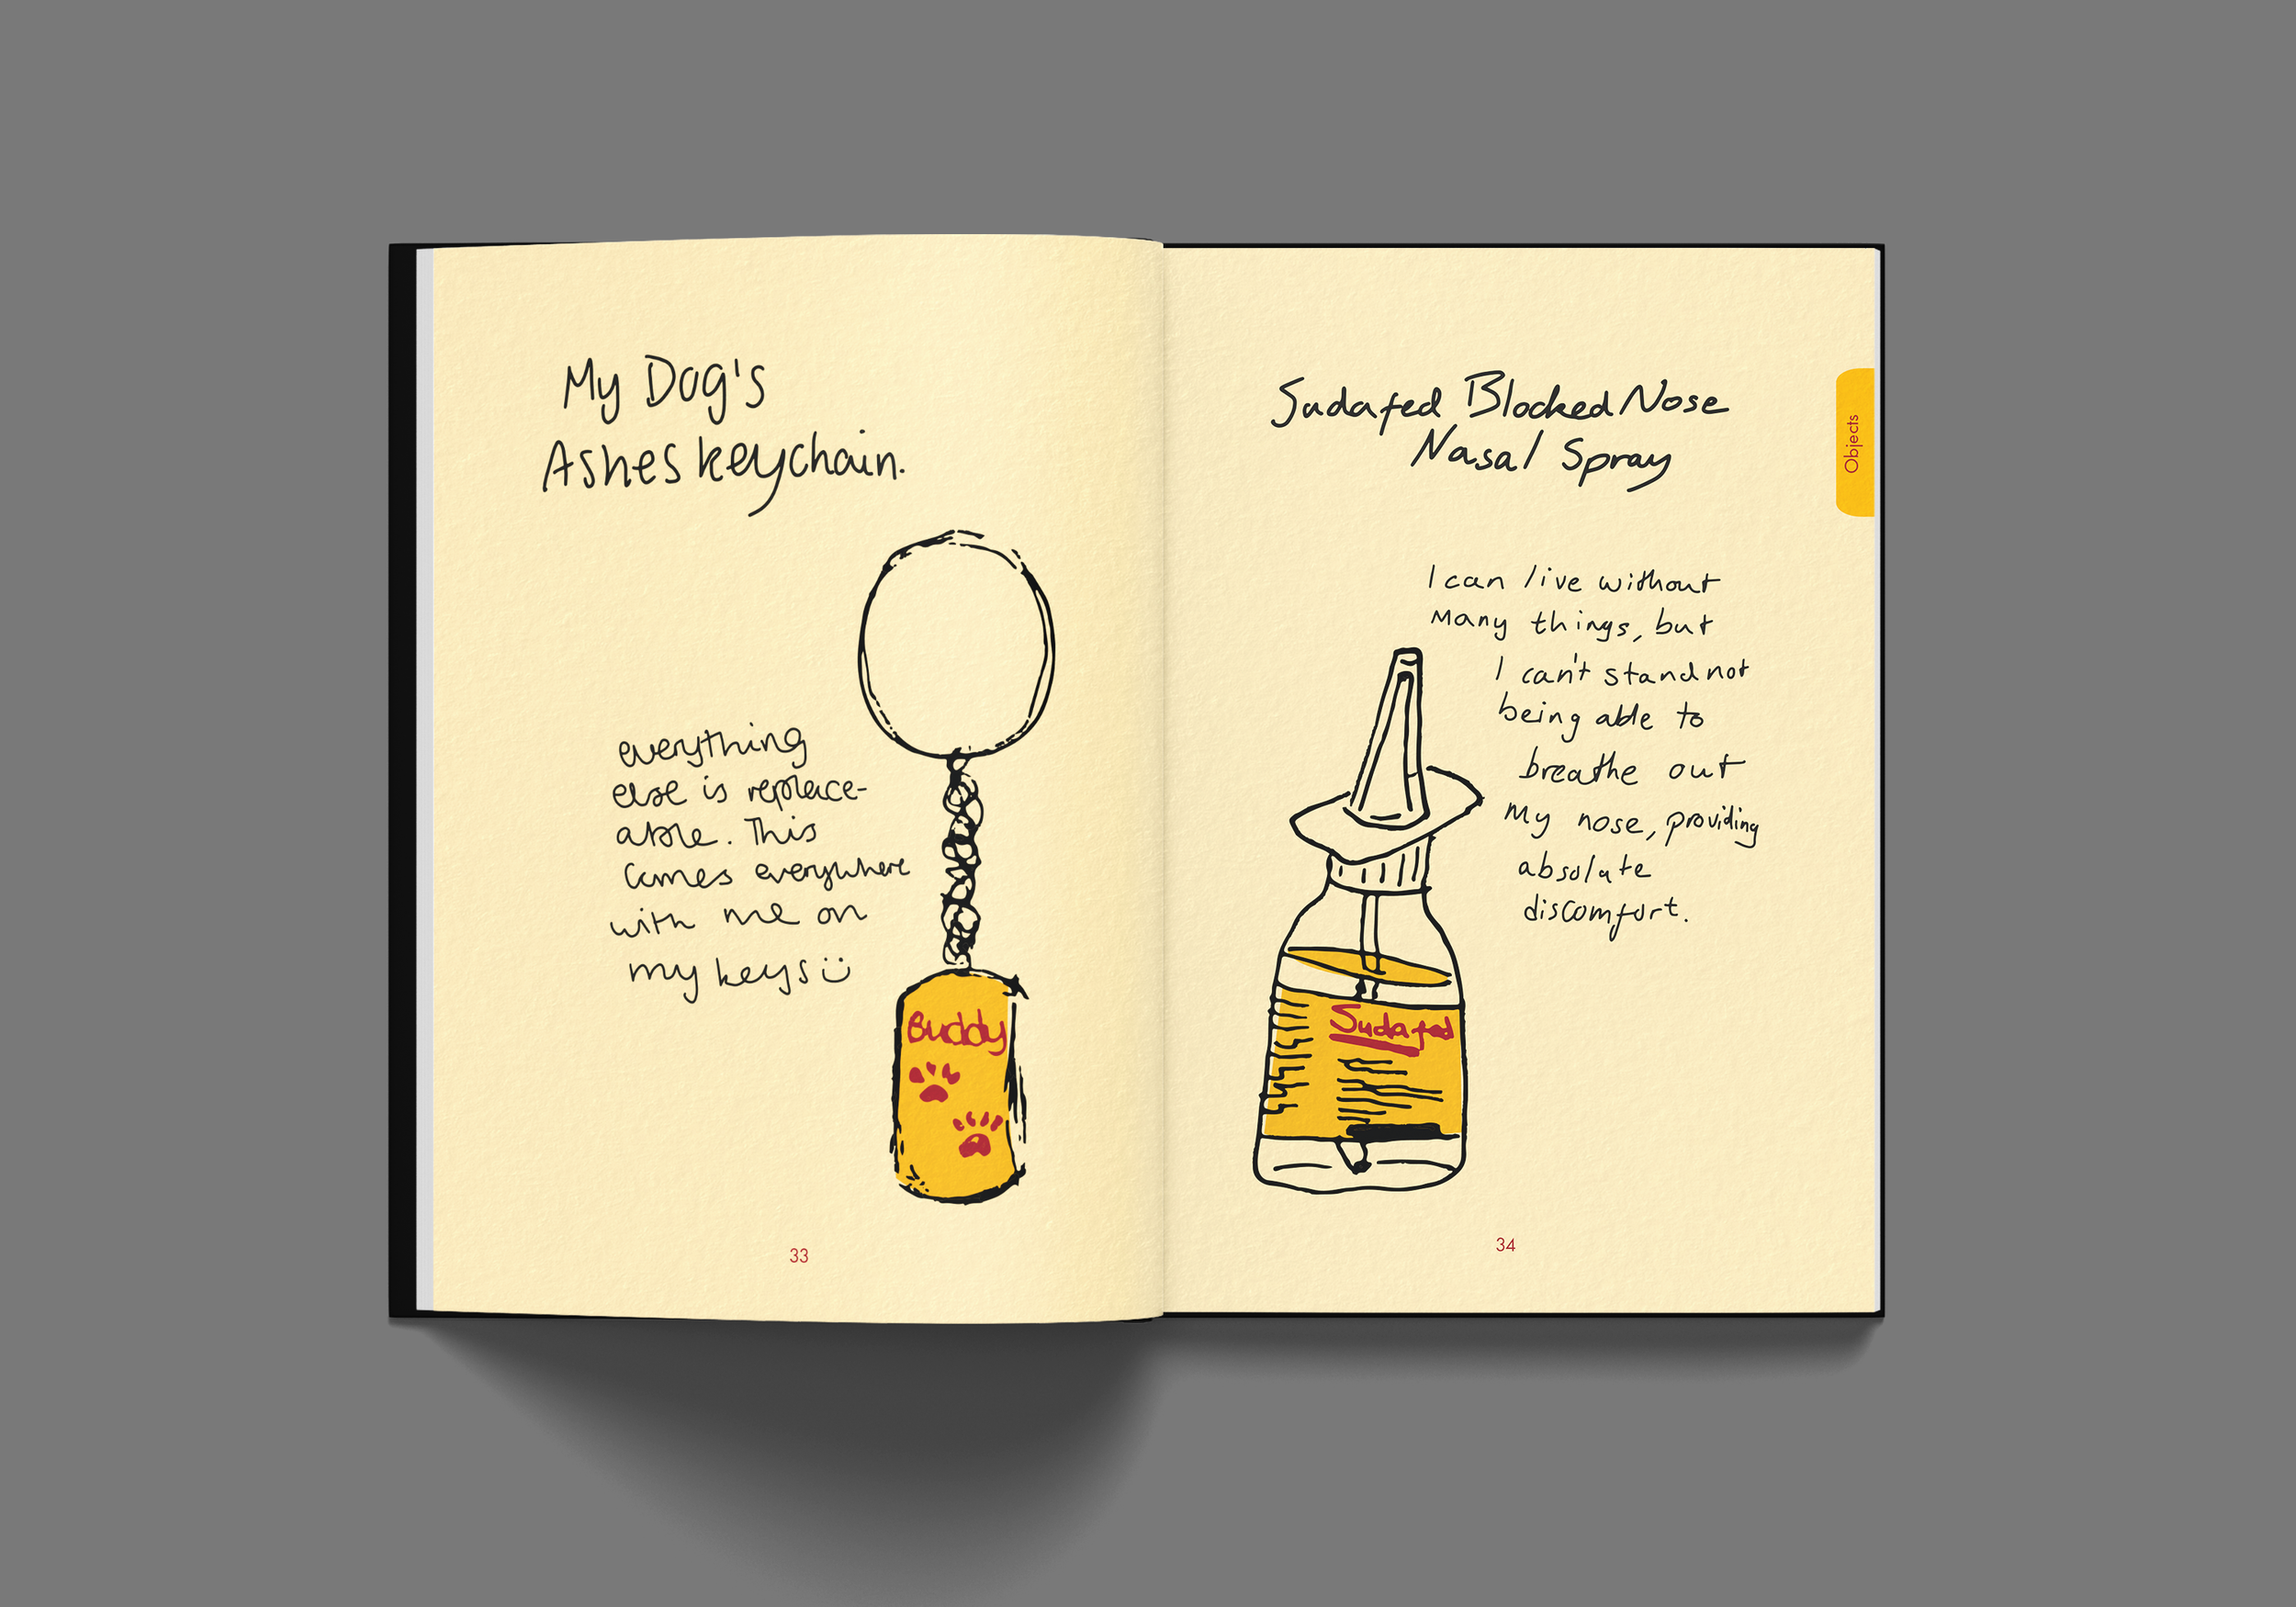 My Dog's
Ashes keychain.
everything
else is replace-
able. This
comes everywhere
with me on
my keys :)
Buddy
33
Sudafed Blocked Nose
Nasal Spray
Objects
I can live without
many things, but
I can't stand not
being able to
breathe out
my nose, providing
absolute
discomfort.
Sudafed
34